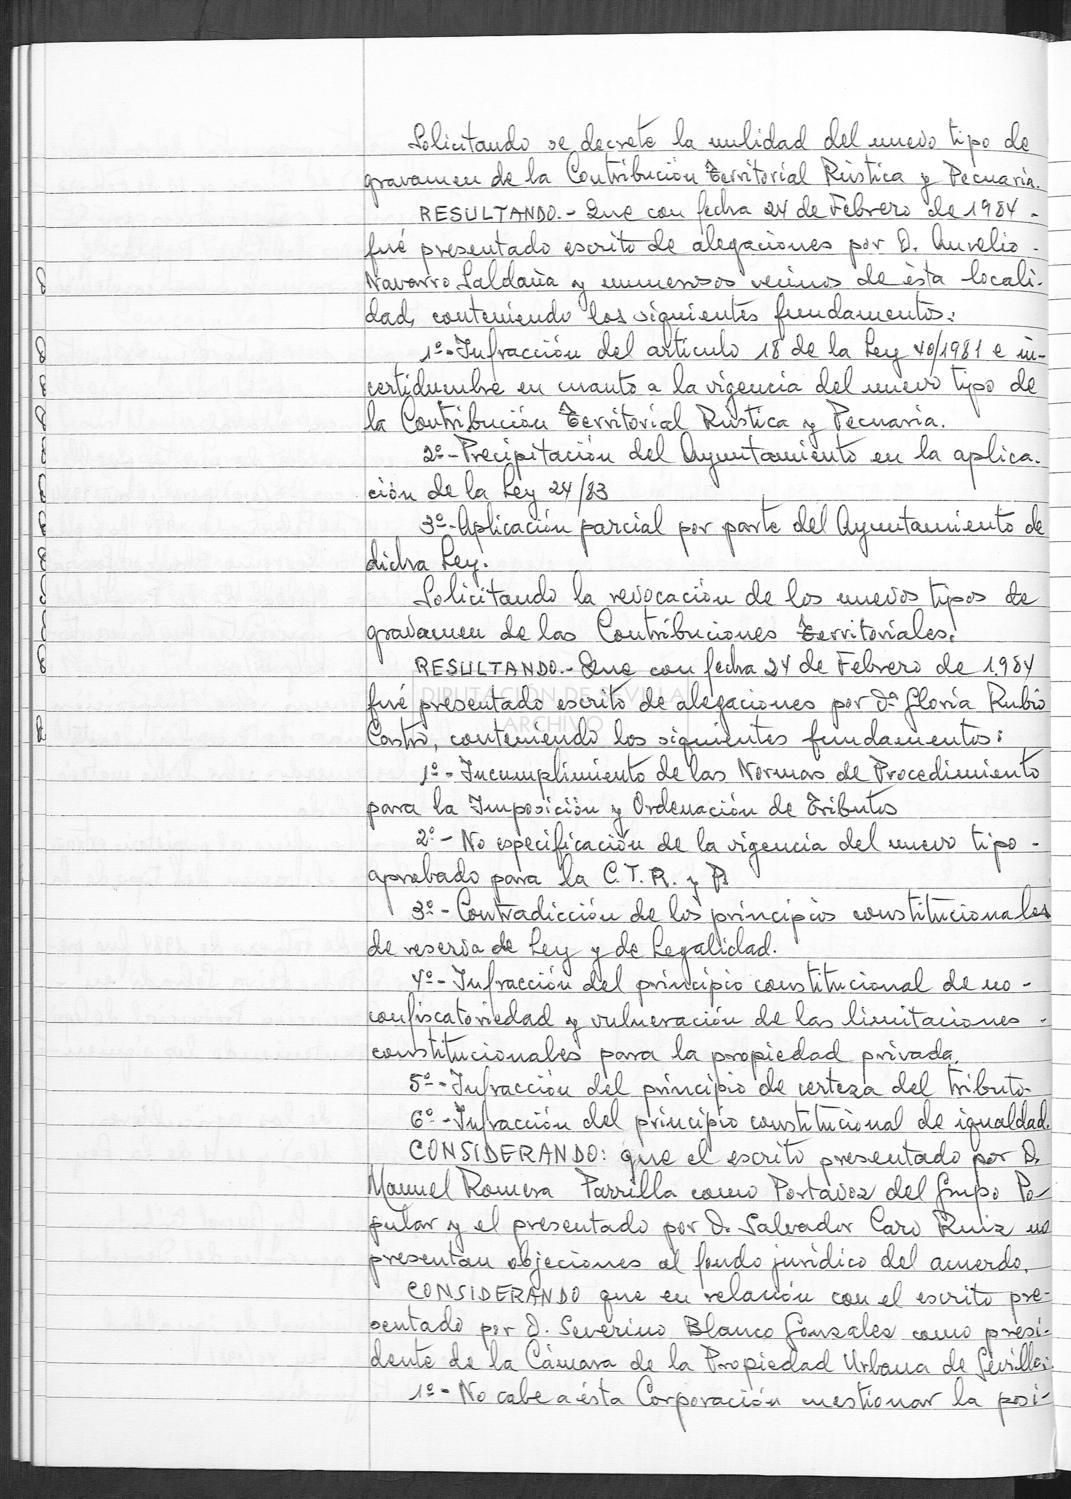 Solicitando se decrete la nulidad del nuevo tipo de
gravamen de la Contribución Territorial Rústica y Pecuaria.
RESULTANDO.- Que con fecha 24 de Febrero de 1984 -
fué presentado escrito de alegaciones por D. Aurelio -
Navarro Saldaña y numerosos vecinos de ésta locali-
dad, conteniendo los siguientes fundamentos:
1º-Infracción del artículo 18 de la Ley 40/1981 e in-
certidumbre en cuanto a la vigencia del nuevo tipo de
la Contribución Territorial Rústica y Pecuaria.
2º-Precipitación del Ayuntamiento en la aplica-
ción de la Ley 24/83
3º-Aplicación parcial por parte del Ayuntamiento de
dicha Ley.
Solicitando la revocación de los nuevos tipos de
gravamen de las Contribuciones Territoriales.
RESULTANDO.- Que con fecha 24 de Febrero de 1984
DIPUTACIÓN DE SEVILLA
fué presentado escrito de alegaciones por Dª Gloria Rubio
ARCHIVO
Castro, conteniendo los siguientes fundamentos:
1º- Incumplimiento de las Normas de Procedimiento
para la Imposición y Ordenación de Tributos
2º- No especificación de la vigencia del nuevo tipo -
aprobado para la C.T.R. y P
3º- Contradicción de los principios constitucionales
de reserva de Ley y de Legalidad.
4º- Infracción del principio constitucional de no -
confiscatoriedad y vulneración de las limitaciones -
constitucionales para la propiedad privada.
5º-Infracción del principio de certeza del tributo.
6º-Infracción del principio constitucional de igualdad.
CONSIDERANDO: que el escrito presentado por D.
Manuel Romera Parrilla como Portavoz del Grupo Po-
pular y el presentado por D. Salvador Caro Ruiz no
presentan objeciones al fondo jurídico del acuerdo.
CONSIDERANDO que en relación con el escrito pre-
sentado por D. Severino Blanco Gonzales como presi-
dente de la Cámara de la Propiedad Urbana de Sevilla:
1º- No cabe a ésta Corporación cuestionar la posi-